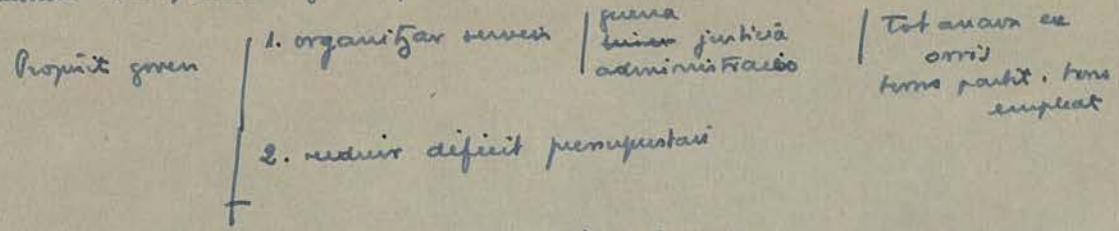 Propòsit govern
1. organitzar serveis
guerra
justícia
administració
Tot anava en
orris
tens partit. tens
empleat
2. reduir dèficit pressupostari